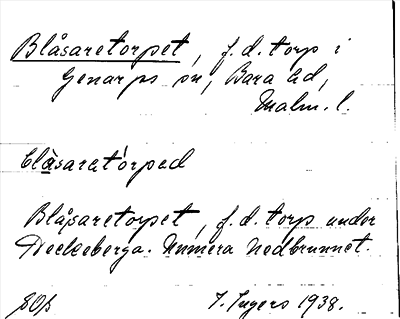 Blåsaretorpet, f.d. torp i
Genarps sn, Bara hd,
Malm. l.
blåsaretórpəd
Blåsaretorpet, f.d. torp under
Heckeberga. Numera nedbrunnet.
1938.